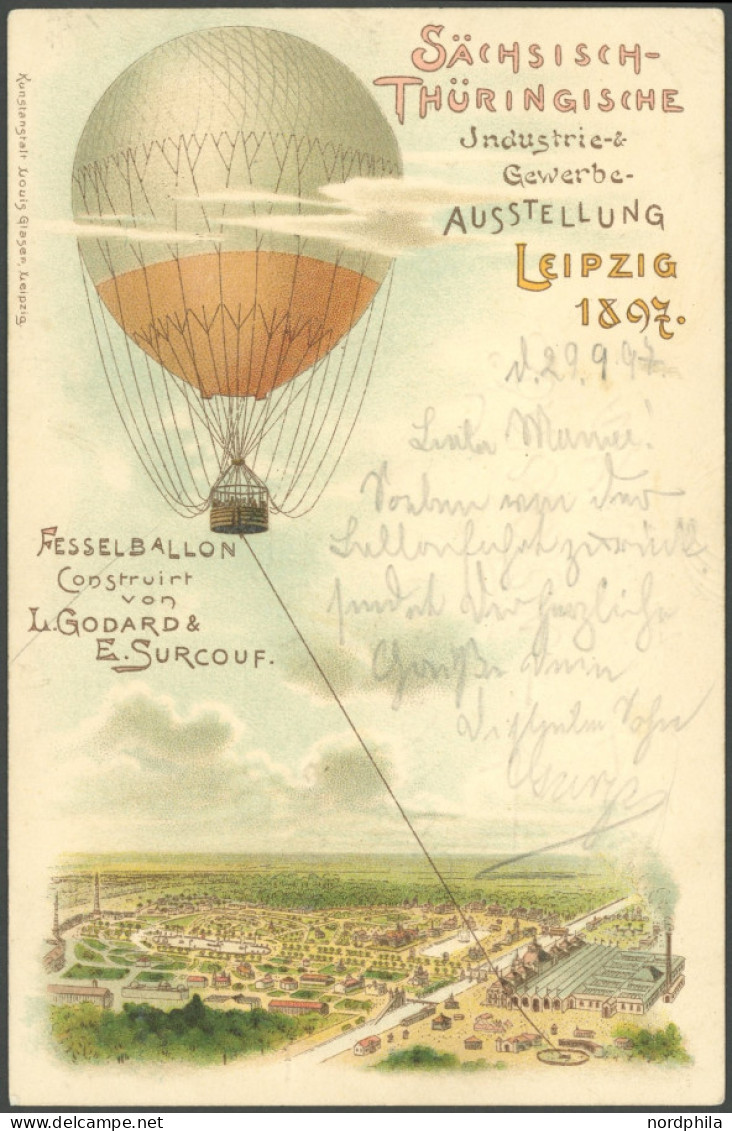 SÄCHSISCH-
THÜRINGISCHE
Industrie- &
Gewerbe-
AUSSTELLUNG
LEIPZIG
1897.
d. 29.9.97
Liebe Mama!
Soeben von der
Ballonfahrt zurück
sendet Dir herzliche
Grüße Dein
Sohn
Georg
FESSELBALLON
Construirt
von
L. GODARD &
E. SURCOUF.
Kunstanstalt Louis Glaser, Leipzig
nordphila
www.delcampe.net